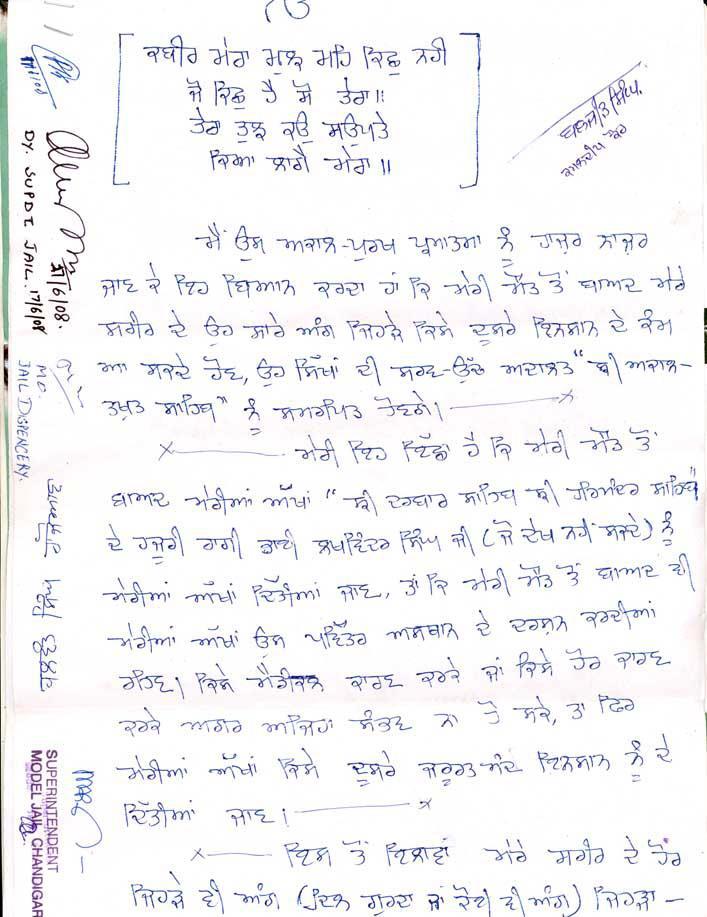 ਕਬੀਰ ਮੇਰਾ ਮੁਝ ਮਹਿ ਕਿਛੁ ਨਹੀ
ਜੋ ਕਿਛੁ ਹੈ ਸੋ ਤੇਰਾ॥
ਤੇਰਾ ਤੁਝ ਕਉ ਸਉਪਤੇ
ਕਿਆ ਲਾਗੈ ਮੇਰਾ॥
ਬਲਜੀਤ ਸਿੰਘ
ਕਮਲਦੀਪ ਕੌਰ
ਮੈਂ ਉਸ ਅਕਾਲ-ਪੁਰਖ ਪ੍ਰਮਾਤਮਾ ਨੂੰ ਹਾਜ਼ਰ ਨਾਜ਼ਰ
ਜਾਣ ਕੇ ਇਹ ਬਿਆਨ ਕਰਦਾ ਹਾਂ ਕਿ ਮੇਰੀ ਮੌਤ ਤੋਂ ਬਾਅਦ ਮੇਰੇ
ਸਰੀਰ ਦੇ ਉਹ ਸਾਰੇ ਅੰਗ ਜਿਹੜੇ ਕਿਸੇ ਦੂਸਰੇ ਇਨਸਾਨ ਦੇ ਕੰਮ
ਆ ਸਕਦੇ ਹੋਣ, ਉਹ ਸਿੱਖਾਂ ਦੀ ਸਰਵ-ਉੱਚ ਅਦਾਲਤ "ਸ੍ਰੀ ਅਕਾਲ-
ਤਖ਼ਤ ਸਾਹਿਬ" ਨੂੰ ਸਮਰਪਿਤ ਹੋਣਗੇ। ——x
x—— ਮੇਰੀ ਇਹ ਇੱਛਾ ਹੈ ਕਿ ਮੇਰੀ ਮੌਤ ਤੋਂ
ਬਾਅਦ ਮੇਰੀਆਂ ਅੱਖਾਂ "ਸ੍ਰੀ ਦਰਬਾਰ ਸਾਹਿਬ ਸ੍ਰੀ ਹਰਿਮੰਦਰ ਸਾਹਿਬ"
ਦੇ ਹਜ਼ੂਰੀ ਰਾਗੀ ਭਾਈ ਲਖਵਿੰਦਰ ਸਿੰਘ ਜੀ (ਜੋ ਦੇਖ ਨਹੀਂ ਸਕਦੇ) ਨੂੰ
ਮੇਰੀਆਂ ਅੱਖਾਂ ਦਿੱਤੀਆਂ ਜਾਣ, ਤਾਂ ਕਿ ਮੇਰੀ ਮੌਤ ਤੋਂ ਬਾਅਦ ਵੀ
ਮੇਰੀਆਂ ਅੱਖਾਂ ਉਸ ਪਵਿੱਤਰ ਅਸਥਾਨ ਦੇ ਦਰਸ਼ਨ ਕਰਦੀਆਂ
ਰਹਿਣ। ਕਿਸੇ ਮੈਡੀਕਲ ਕਾਰਣ ਕਰਕੇ ਜਾਂ ਕਿਸੇ ਹੋਰ ਕਾਰਣ
ਕਰਕੇ ਅਗਰ ਅਜਿਹਾ ਸੰਭਵ ਨਾ ਹੋ ਸਕੇ, ਤਾਂ ਫਿਰ
ਮੇਰੀਆਂ ਅੱਖਾਂ ਕਿਸੇ ਦੂਸਰੇ ਜਰੂਰਤਮੰਦ ਇਨਸਾਨ ਨੂੰ ਦੇ
ਦਿੱਤੀਆਂ ਜਾਣ। ——x
x—— ਇਸ ਤੋਂ ਇਲਾਵਾਂ ਮੇਰੇ ਸਰੀਰ ਦੇ ਹੋਰ
ਜਿਹੜੇ ਵੀ ਅੰਗ (ਦਿਲ ਗੁਰਦਾ ਜਾਂ ਕੋਈ ਵੀ ਅੰਗ) ਜਿਹੜਾ -
DY. SUPDT JAIL. 17/6/08
17/6/08.
MO.
JAIL DISPENCERY.
SUPERINTENDENT
MODEL JAIL, CHANDIGAR